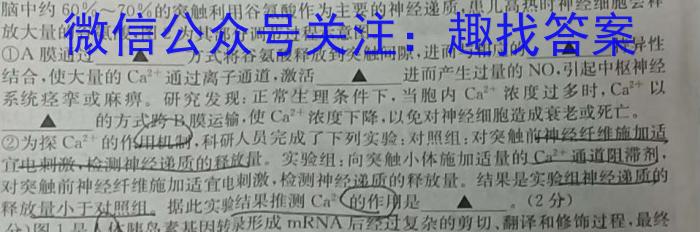 脑中约60%~70%的突触利用谷氨酸作为主要的神经递质,患儿高热时神经细胞会释
放大量的
微信公众号关注：趣找答案
①A膜通过▲方式将谷氨酸释放到突触间隙,进而▲异性
结合,使大量的Ca²⁺通过离子通道,激活▲进而产生过量的NO,引起中枢神经
系统痉挛或麻痹。研究发现:正常生理条件下,当胞内Ca²⁺浓度过多时,Ca²⁺以
▲的方式跨B膜运输,使Ca²⁺浓度下降,以免对神经细胞造成衰老或死亡。
②为探Ca²⁺的作用机制,科研人员完成了下列实验:对照组:对突触前神经纤维施加适
宜电刺激,检测神经递质的释放量。实验组:向突触小体施加适量的Ca²⁺通道阻滞剂,
对突触前神经纤维施加适宜电刺激,检测神经递质的释放量。结果是实验组神经递质的
释放量小于对照组。据此实验结果推测Ca²⁺的作用是▲。(2分)
分)图1是人体胰岛素基因转录形成mRNA后经过复杂的剪切、翻译和修饰过程,最终